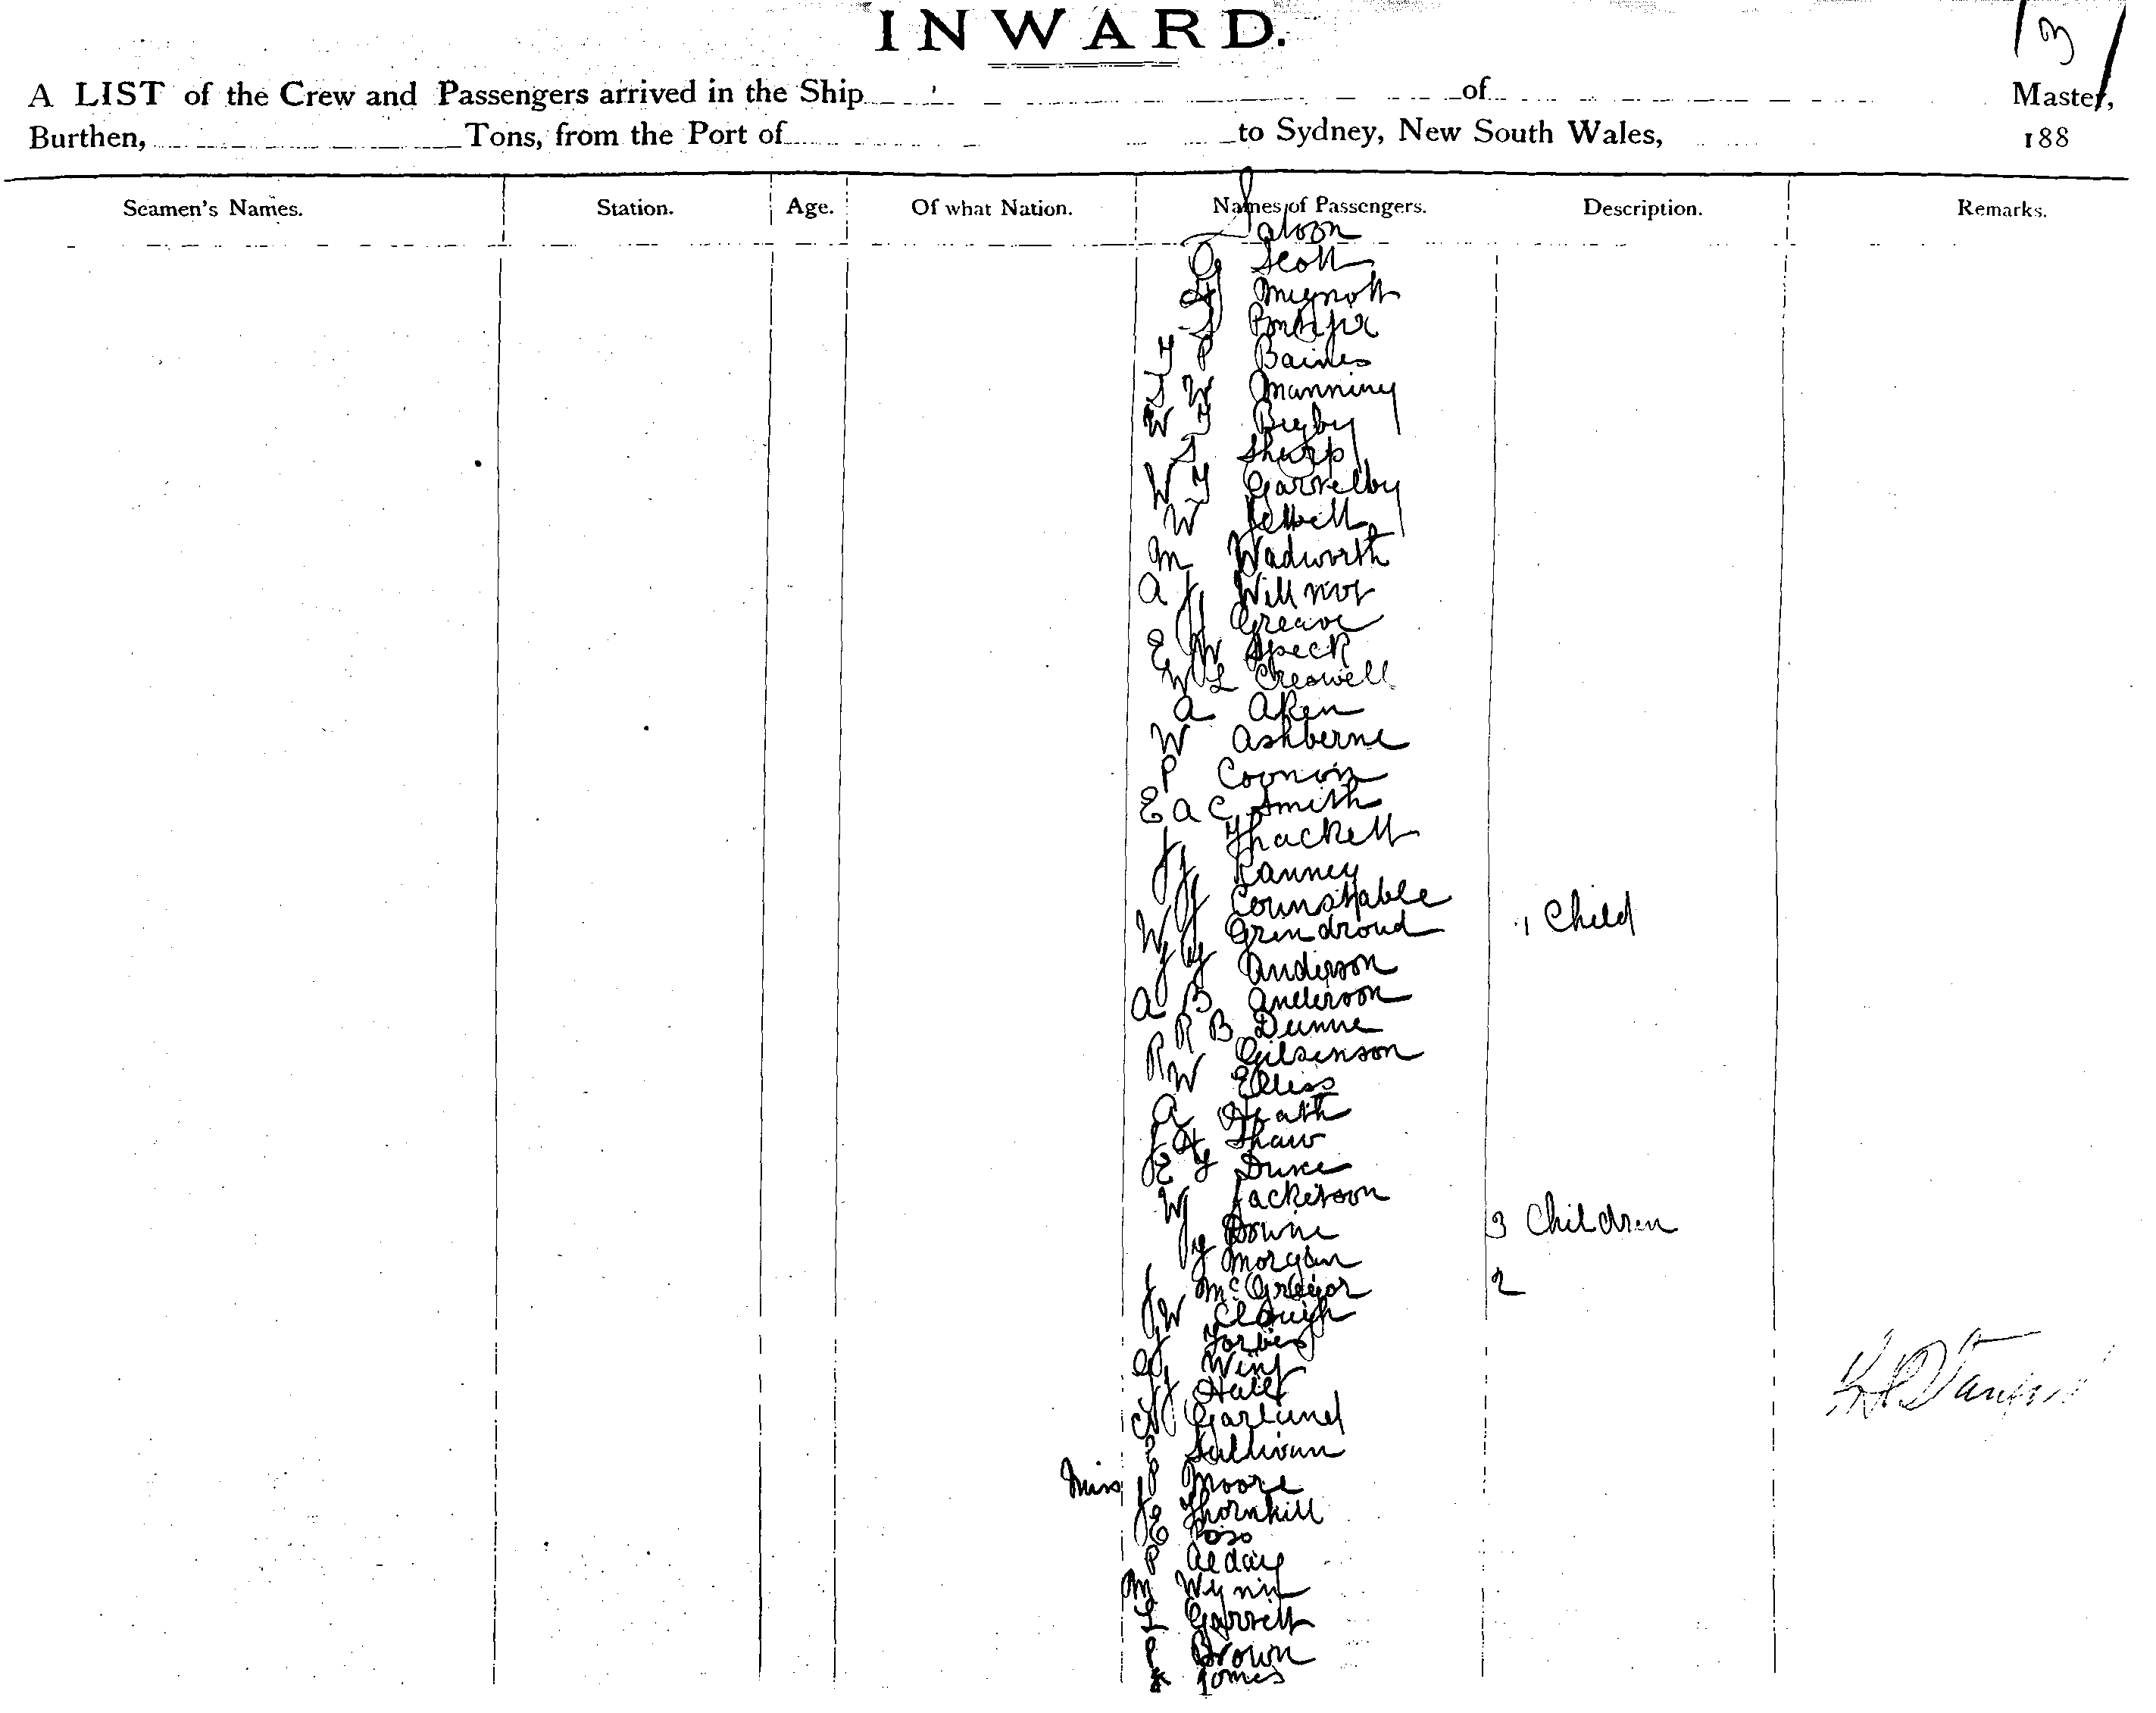 INWARD.
3
A LIST of the Crew and Passengers arrived in the Ship of Master,
Burthen, Tons, from the Port of to Sydney, New South Wales, 188
Seamen's Names. Station. Age. Of what Nation. Names of Passengers. Description. Remarks.
Saloon
G Scott
Mignott
S
T P Baines
S W Manning
W T Bigby
S Sharp
W T
W
M Wadworth
A J Willmot
J Greave
E W Speck
W L Creswell
A Aken
W Ashberne
P
E A C Smith
J Thackett
JКанney
J Counstable
W Grindroud 1 Child
J G Anderson
A B Anderson
R B Dunne
R Gilsenson
W Elliss
A Heath
J H Shaw
E G Duke
W Jackerson
J Downe 3 Children
G Morgan
J McGregor 2
J W Clough
J Forbes
G Wing
J Hall
Garland
P Sullivan
Miss P Moore
J E Thornhill
E
P
M Wynne
L Garrett
P Brown